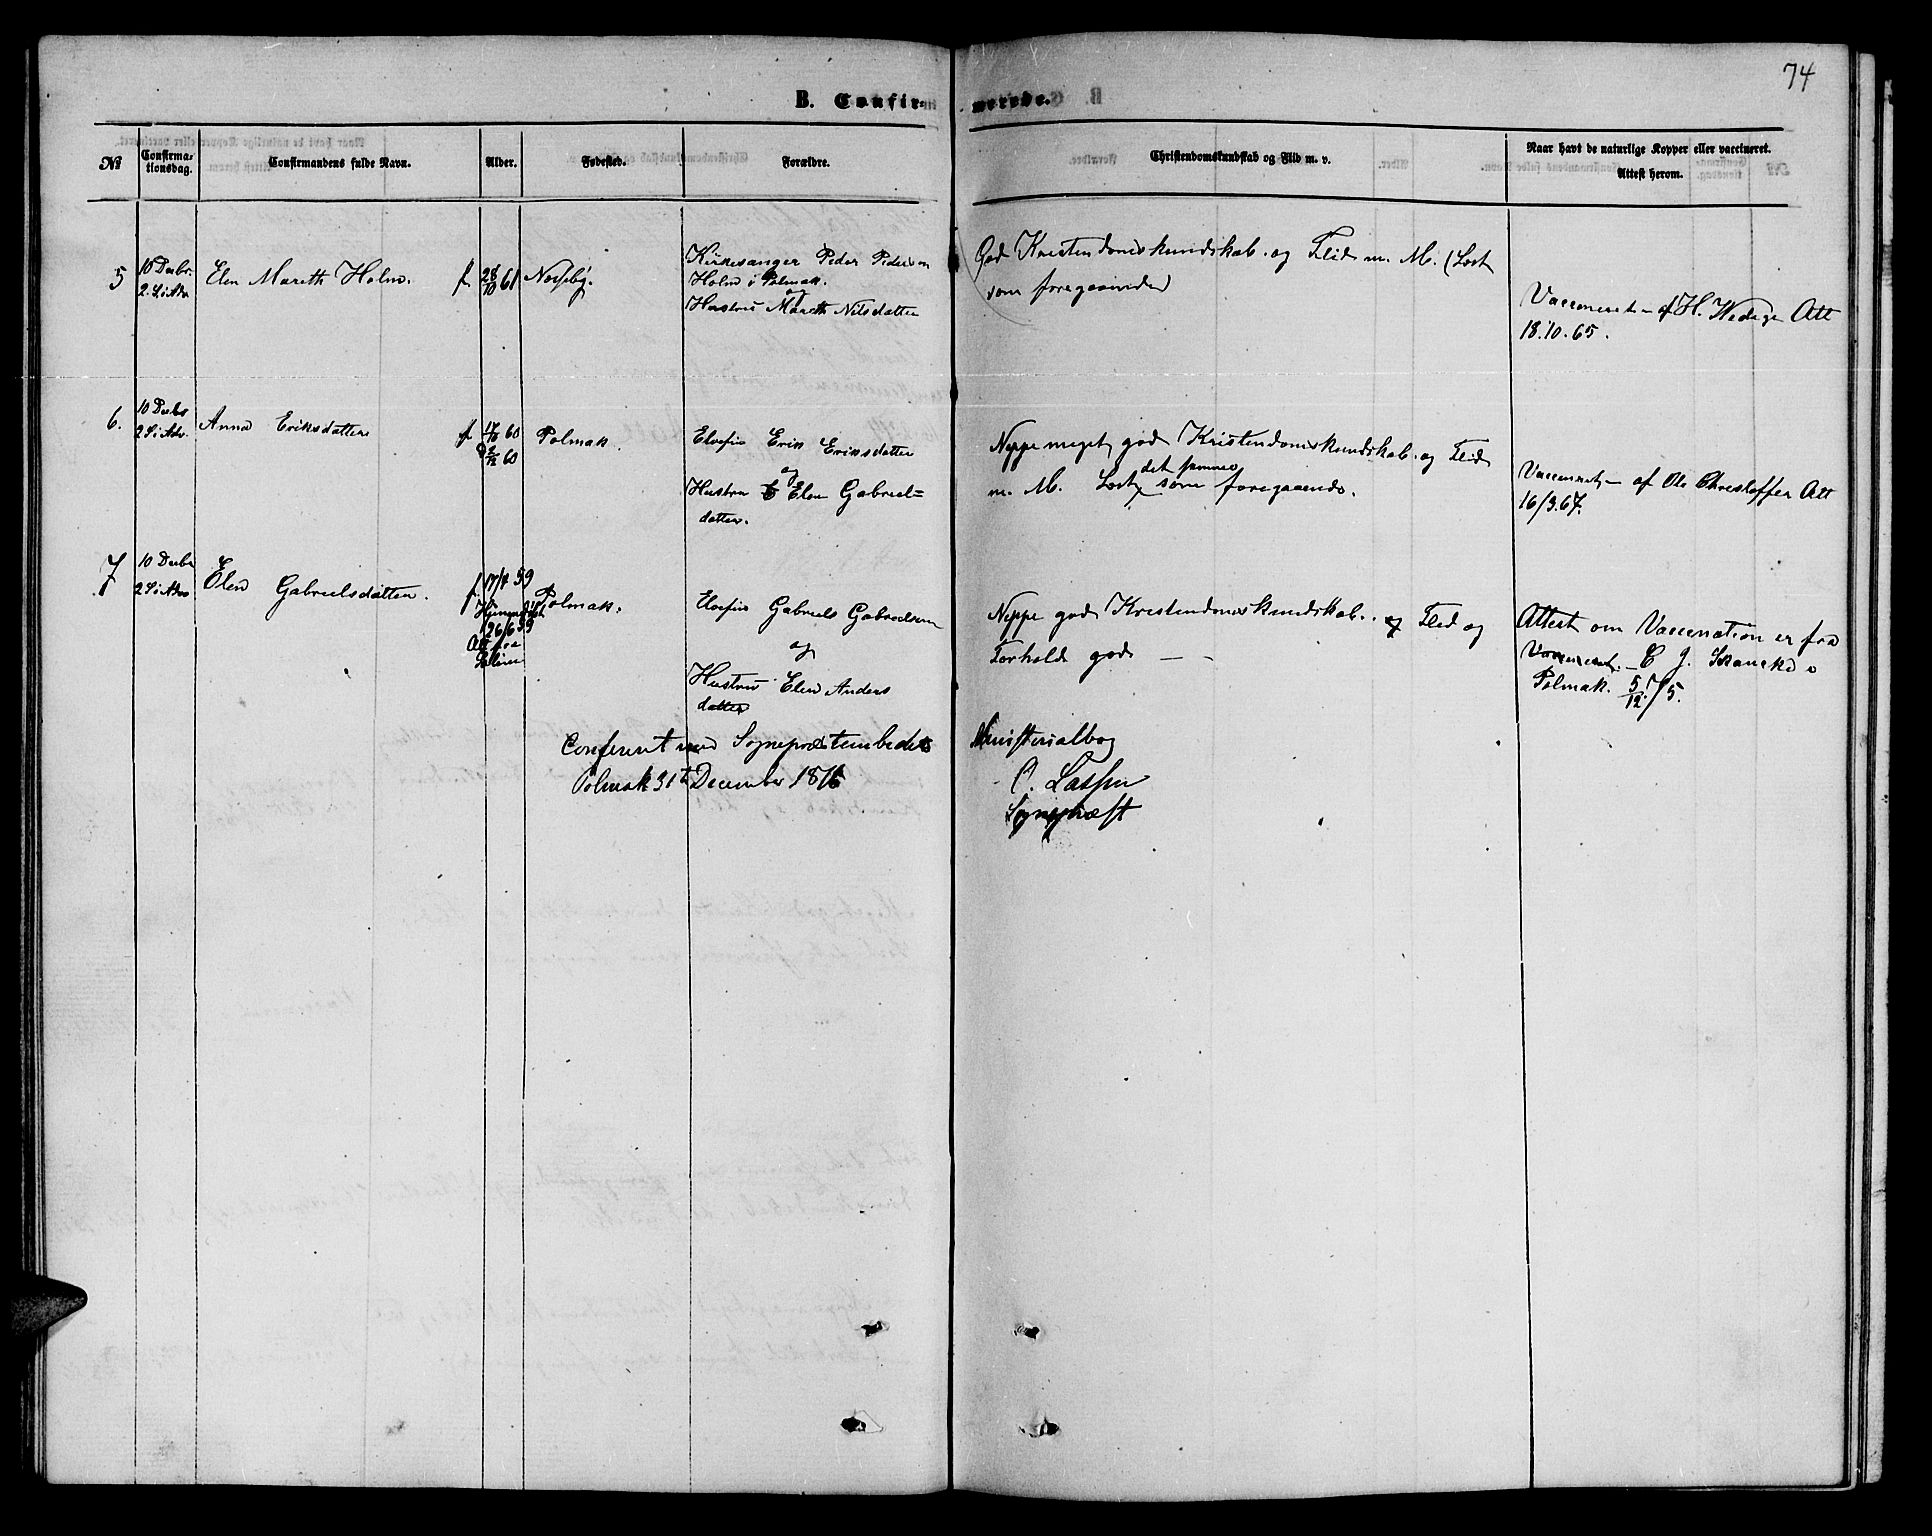 74
B. Confir-
merede.
No
Confirma-
tionsdag.
Confirmandens fulde Navn.
Alder.
Fødested.
Forældre.
Christendomskundskab og Flid m. v.
Naar havt de naturlige Kopper eller vaccineret.
Attest herom.
5
10 Decbr.
2. S. i Adv
Elen Mareth Holm.
f. 28/10 61
Nesseby.
Kirkesanger Peder Pedersen
Holm i Polmak.
og
Hustru Mareth Nilsdatter
God Kristendomskundskab. og Flid m. M. (Lost
som foregaaende)
Vaccineret – af H. Wedege Att
18.10.65.
6.
10 Decbr
2 S. i Adv.
Anna Eriksdatter
f. 60
60
Polmak.
Elvefin Erik Eriksdatter
og
Hustru Elen Gabriel=
datter.
Neppe meget god Kristendomskundskab. og Flid
m. M. Lost det samme som foregaaende.
Vaccineret – af Ole Christoffer Att
16/3.67.
7
10 Decbr
2 S i Adv
Elen Gabrielsdatter.
f. 17/4 59
26/6 59
Att fra
Polmak.
Elvefin Gabriels Gabrielsen
og
Hustru Elen Anders
datter
Neppe god Kristendomskundskab. og Flid og
Forhold god – –
Attest om Vaccination er fra
Vaccineret. – C J. Skanke i
Polmak. 5/12 75.
Conferert med Sognepræstembedets
Ministerialbog
Polmak 31te December 1876
O. Lassen
Sognepræst